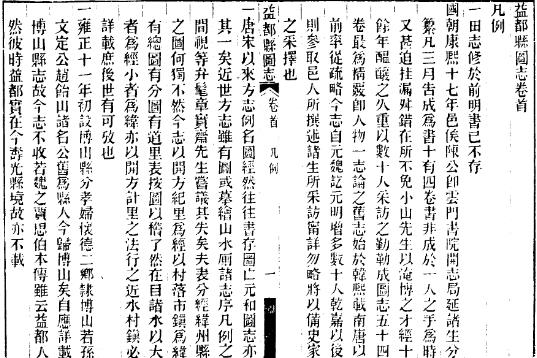 益都縣圖志卷首
凡例
一田志修於前明書已不存
國朝康熙十七年邑侯陳公卽雲門書院開志局延諸生分
纂凡三月吿成爲書十有四卷書非成於一人之手爲時
又甚迫挂漏舛錯在所不免小山先生以淹博之才經十
餘年醖釀之久重以數十人采訪之勤勒成圖志五十四
卷最爲精覈卽人物一志論之舊志始於韓熙載南唐以
前率從疏略今志自元魏訖元明增多數十人乾嘉以後
則參取邑人所撰述諸生所采訪甯詳勿略將以備史家
之采擇也
益都縣圖志 卷首 凡例 一
一唐宋以來方志例名圖經然往往書存圖亡元和圖志亦
其一矣近世方志雖有圖或摹繪山水厠諸志序凡例之
間視等弁髦章實齋先生嘗議其失矣夫表分經緯州縣
之圖何獨不然今志以開方紀里爲經以村落市鎭爲緯
有總圖有分圖有道里表按圖以稽了然在目諸水以大
者爲經小者爲緯亦以開方計里之法行之近水村鎭必
詳載庶後世有可攷也
一雍正十一年初設博山縣分孝婦懷德二鄕隸博山若孫
文定公趙飴山諸名公舊爲縣人今歸博山矣自應詳載
博山縣志故今志不收若魏之賈思伯本傳雖云益都人
然彼時益都實在今壽光縣境故亦不載